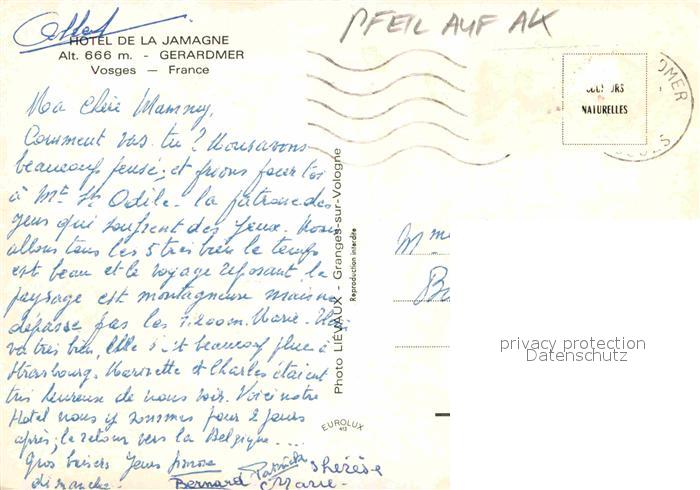 PFEIL AUF AK
HOTEL DE LA JAMAGNE
Alt. 666 m. - GERARDMER
Vosges — France
COULEURS
NATURELLES
Ma Chère Mammy,
Comment vas-tu? Nous avons
beaucoup pensé; et prions pour toi
à Mt Ste Odile - la patronne des
gens qui souffrent des yeux. Nous
allons tous les 5 très bien le temps
est beau et le voyage reposant, le
paysage est montagneux mais ne
dépasse pas les 1.200m. Marie-
va très bien, Elle beaucoup plue à
Strasbourg. Mariette et Charles étaient
très heureuse de nous voir. Voici notre
Hotel nous y sommes pour 2 jours
après; le retour vers la Belgique ....
Gros baisers
dimanche.
Bernard Patricia Thérèse
Marie-
Photo LIÉVAUX - Granges-sur-Vologne
Reproduction interdite
EUROLUX
Mme
privacy protection
Datenschutz